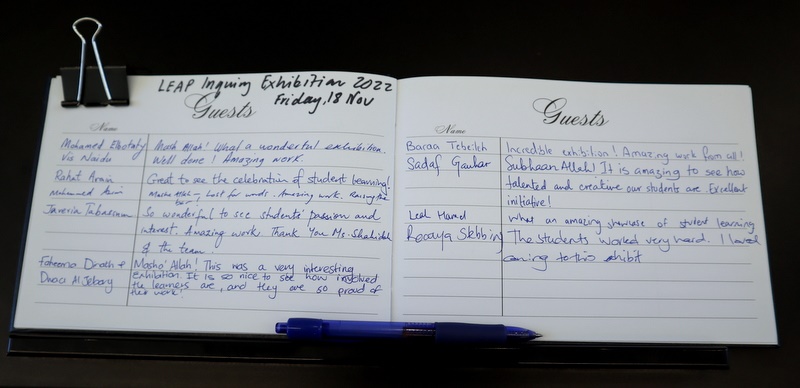 LEAP Inquiry Exhibition 2022
Friday, 18 Nov
Guests
Name
Mohamed
Vis Naidu
Mash Allah! What a wonderful exhibition.
Well done! Amazing work.
Rahat Amin
Great to see the celebration of student learning!
Muhammad Amin
Masha Allah - Lost for words. Amazing work. Raising the
bar!
Javeria Tabassum
So wonderful to see students' passion and
interest. Amazing work. Thank You Ms. Shahidah
& the team.
Faheema
Al Jebory
Masha' Allah! This was a very interesting
exhibition. It is so nice to see how involved
the learners are, and they are so proud of
their work.
Guests
Name
Baraa
Incredible exhibition! Amazing work from all!
Sadaf Gauhar
Subhaan Allah! It is amazing to see how
talented and creative our students are. Excellent
initiative!
Leel Hamed
What an amazing showcase of student learning
The students worked very hard. I loved
coming to this exhibit